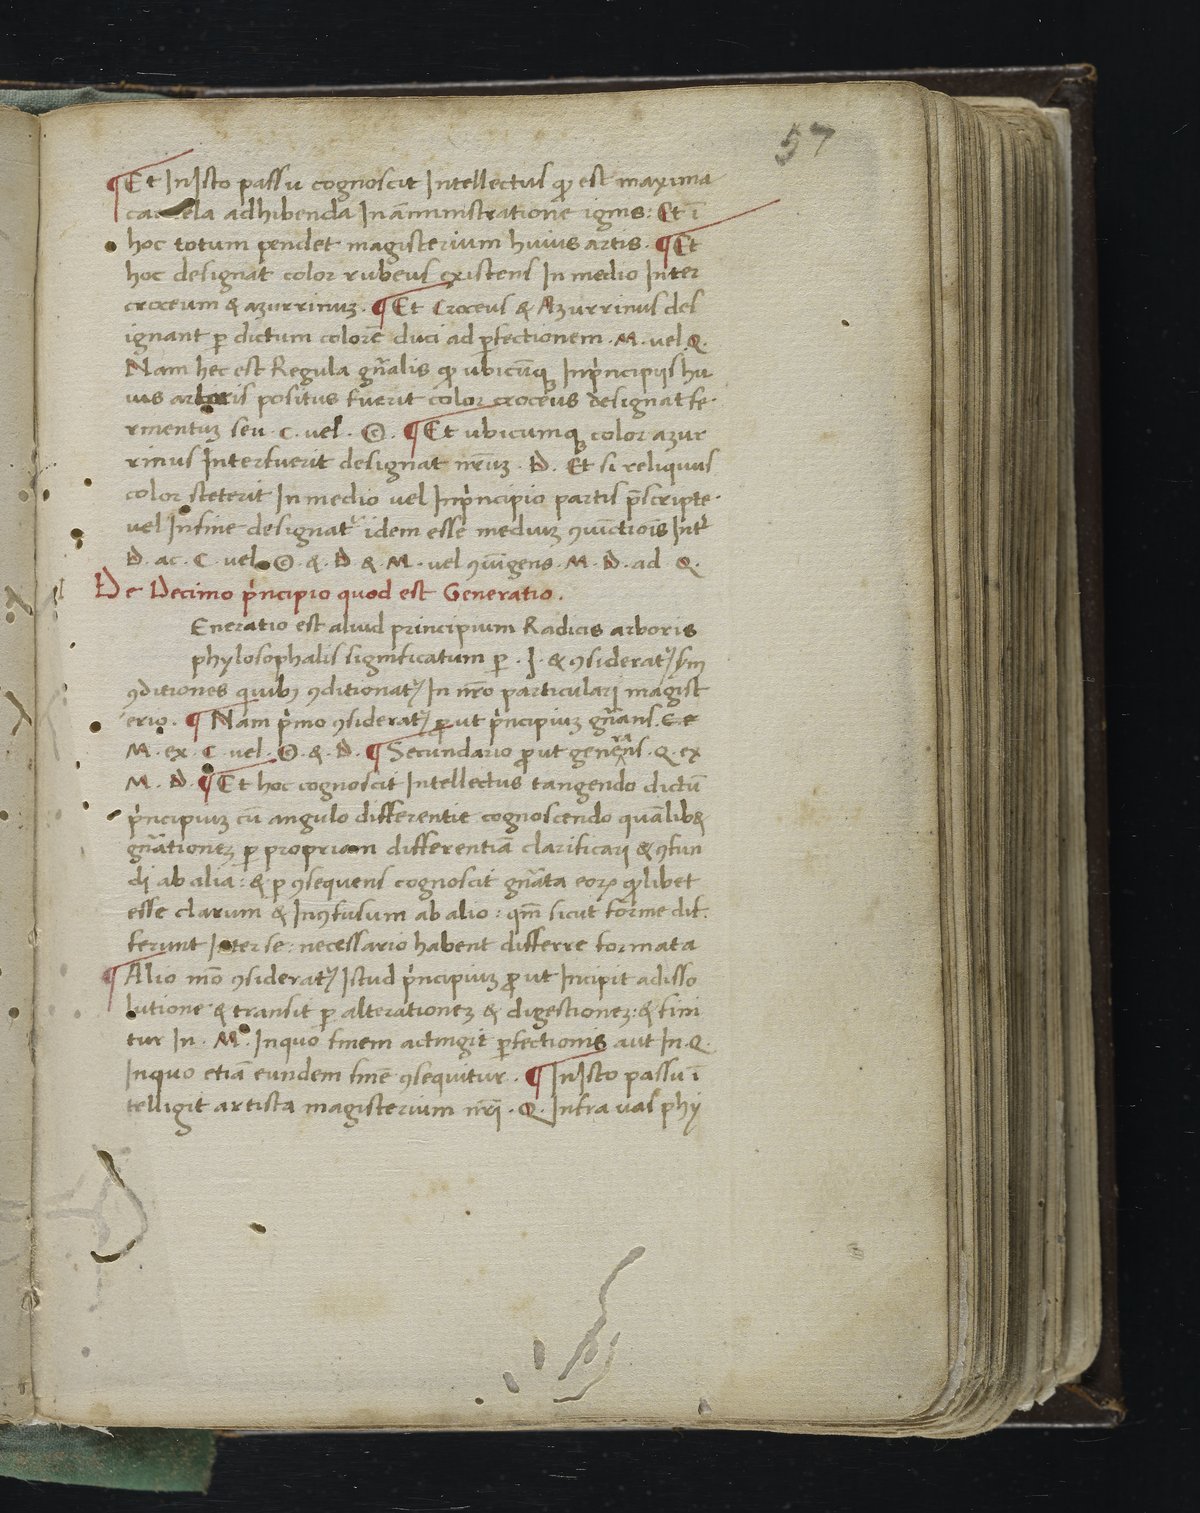 57
¶Et InIsto passu cognoscit Intellectus ꝙ est maxima
cautela adhibenda Inam̄inistratione ignis: Et ī
hoc totum pendet magisterium huius artis. ¶Et
hoc designat color rubeus existens In medio Inter
croceum & azurrinuz. ¶Et Croceus & Azurrinus des
ignant ꝑ dictum colorē duci ad ꝑfectionem. M. vel Q.
Nam hec est Regula gn̄alis ꝙ ubicūqꝫ Inpͥncipijs hu
ius arboris positus fuerit color croceus designat fe
rmentuz seu. C. vel. ©. ¶Et ubicumqꝫ color azur
rinus Interfuerit designat nr̄uz. D. Et si reliquus
color steterit In medio vel Inpͥncipio partis p̄scripte.
vel Infine designatᷣ idem esse mediuz ꝯiūctiōis Intᷣ
D. ac. C. vel. ©. &. D & M. vel ꝯiūgens. M. D. ad Q.
De Decimo pͥncipio quod est Generatio.
Eneratio est aliud principium Radicis arboris
phylosophalis significatum ꝑ. I. & ꝯsideratᷣ sm̄
ꝯditiones quibꝫ ꝯditionatᷣ In nr̄o particulari magist
erio. ¶Nam pͥmo ꝯsideratᷣ ꝓut pͥncipiuz gn̄ans.
M. ex. C. vel. ©. &. D. ¶Secundario ꝓut generans. Q. ex
M. D. ¶Et hoc cognoscit Intellectus tangendo dictū
pͥncipiuz cū angulo differentie cognoscendo quālib&
gn̄ationez ꝑ propriam differentiā clarificari & ꝯfun
di ab alia: & ꝑ ꝯsequens cognoscit gn̄ata eoꝝ ꝙlibet
esse clarum & Inꝯfusum ab alio: qm̄ sicut forme dif
ferunt Inter se: necessario habent differre formata
¶Alio mō ꝯsideratᷣ Istud pͥncipiuz ꝓut Incipit adisso
lutione & transit ꝑ alterationez & digestionez: & fini
tur In. M. Inquo finem actingit ꝑfectionis aut In. Q.
Inquo etiā eundem finē ꝯsequitur. ¶InIsto passu ī
telligit artista magisterium nr̄i. Q. Infra vas phy